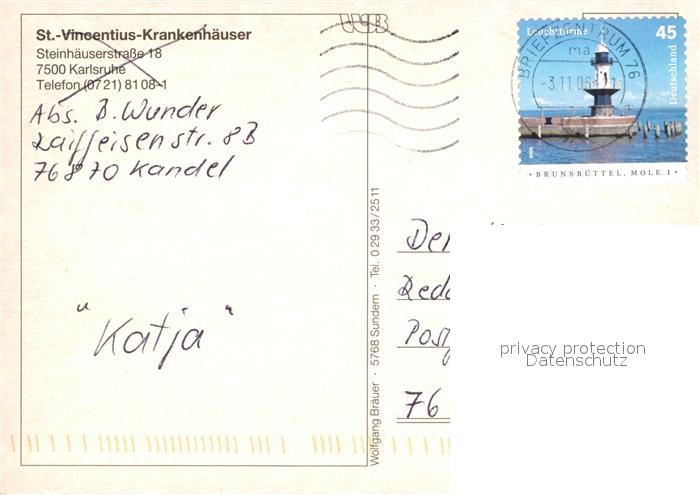 St.-Vincentius-Krankenhäuser
Steinhäuserstraße 18
7500 Karlsruhe
Telefon (07 21) 81 08-1
Abs. B. Wunder
Raiffeisenstr. 8B
76870 Kandel
"Katja"
WGB
Wolfgang Bräuer · 5768 Sundern · Tel. 0 29 33 / 25 11
Leuchttürme 45
Deutschland
BRIEFZENTRUM 76
ma
-3.11.06
BRUNSBÜTTEL, MOLE 1
76
privacy protection
Datenschutz